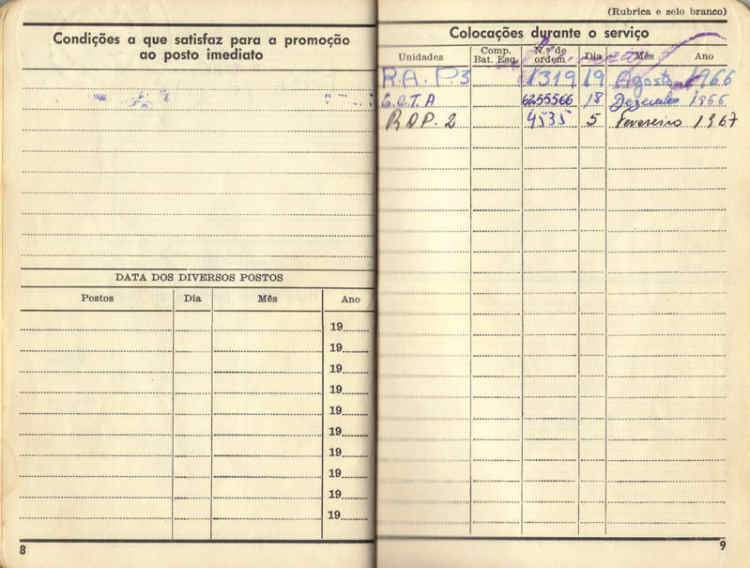 Condições a que satisfaz para a promoção
ao posto imediato
DATA DOS DIVERSOS POSTOS
Postos Dia Mês Ano
19
19
19
19
19
19
19
19
19
19
8
(Rubrica e selo branco)
Colocações durante o serviço
Unidades Comp. Bat. Esq. N.º de ordem Dia Mês Ano
R.A.P.3 1319 19 Agosto 1966
18 1966
4535 5 Fevereiro 1967
9